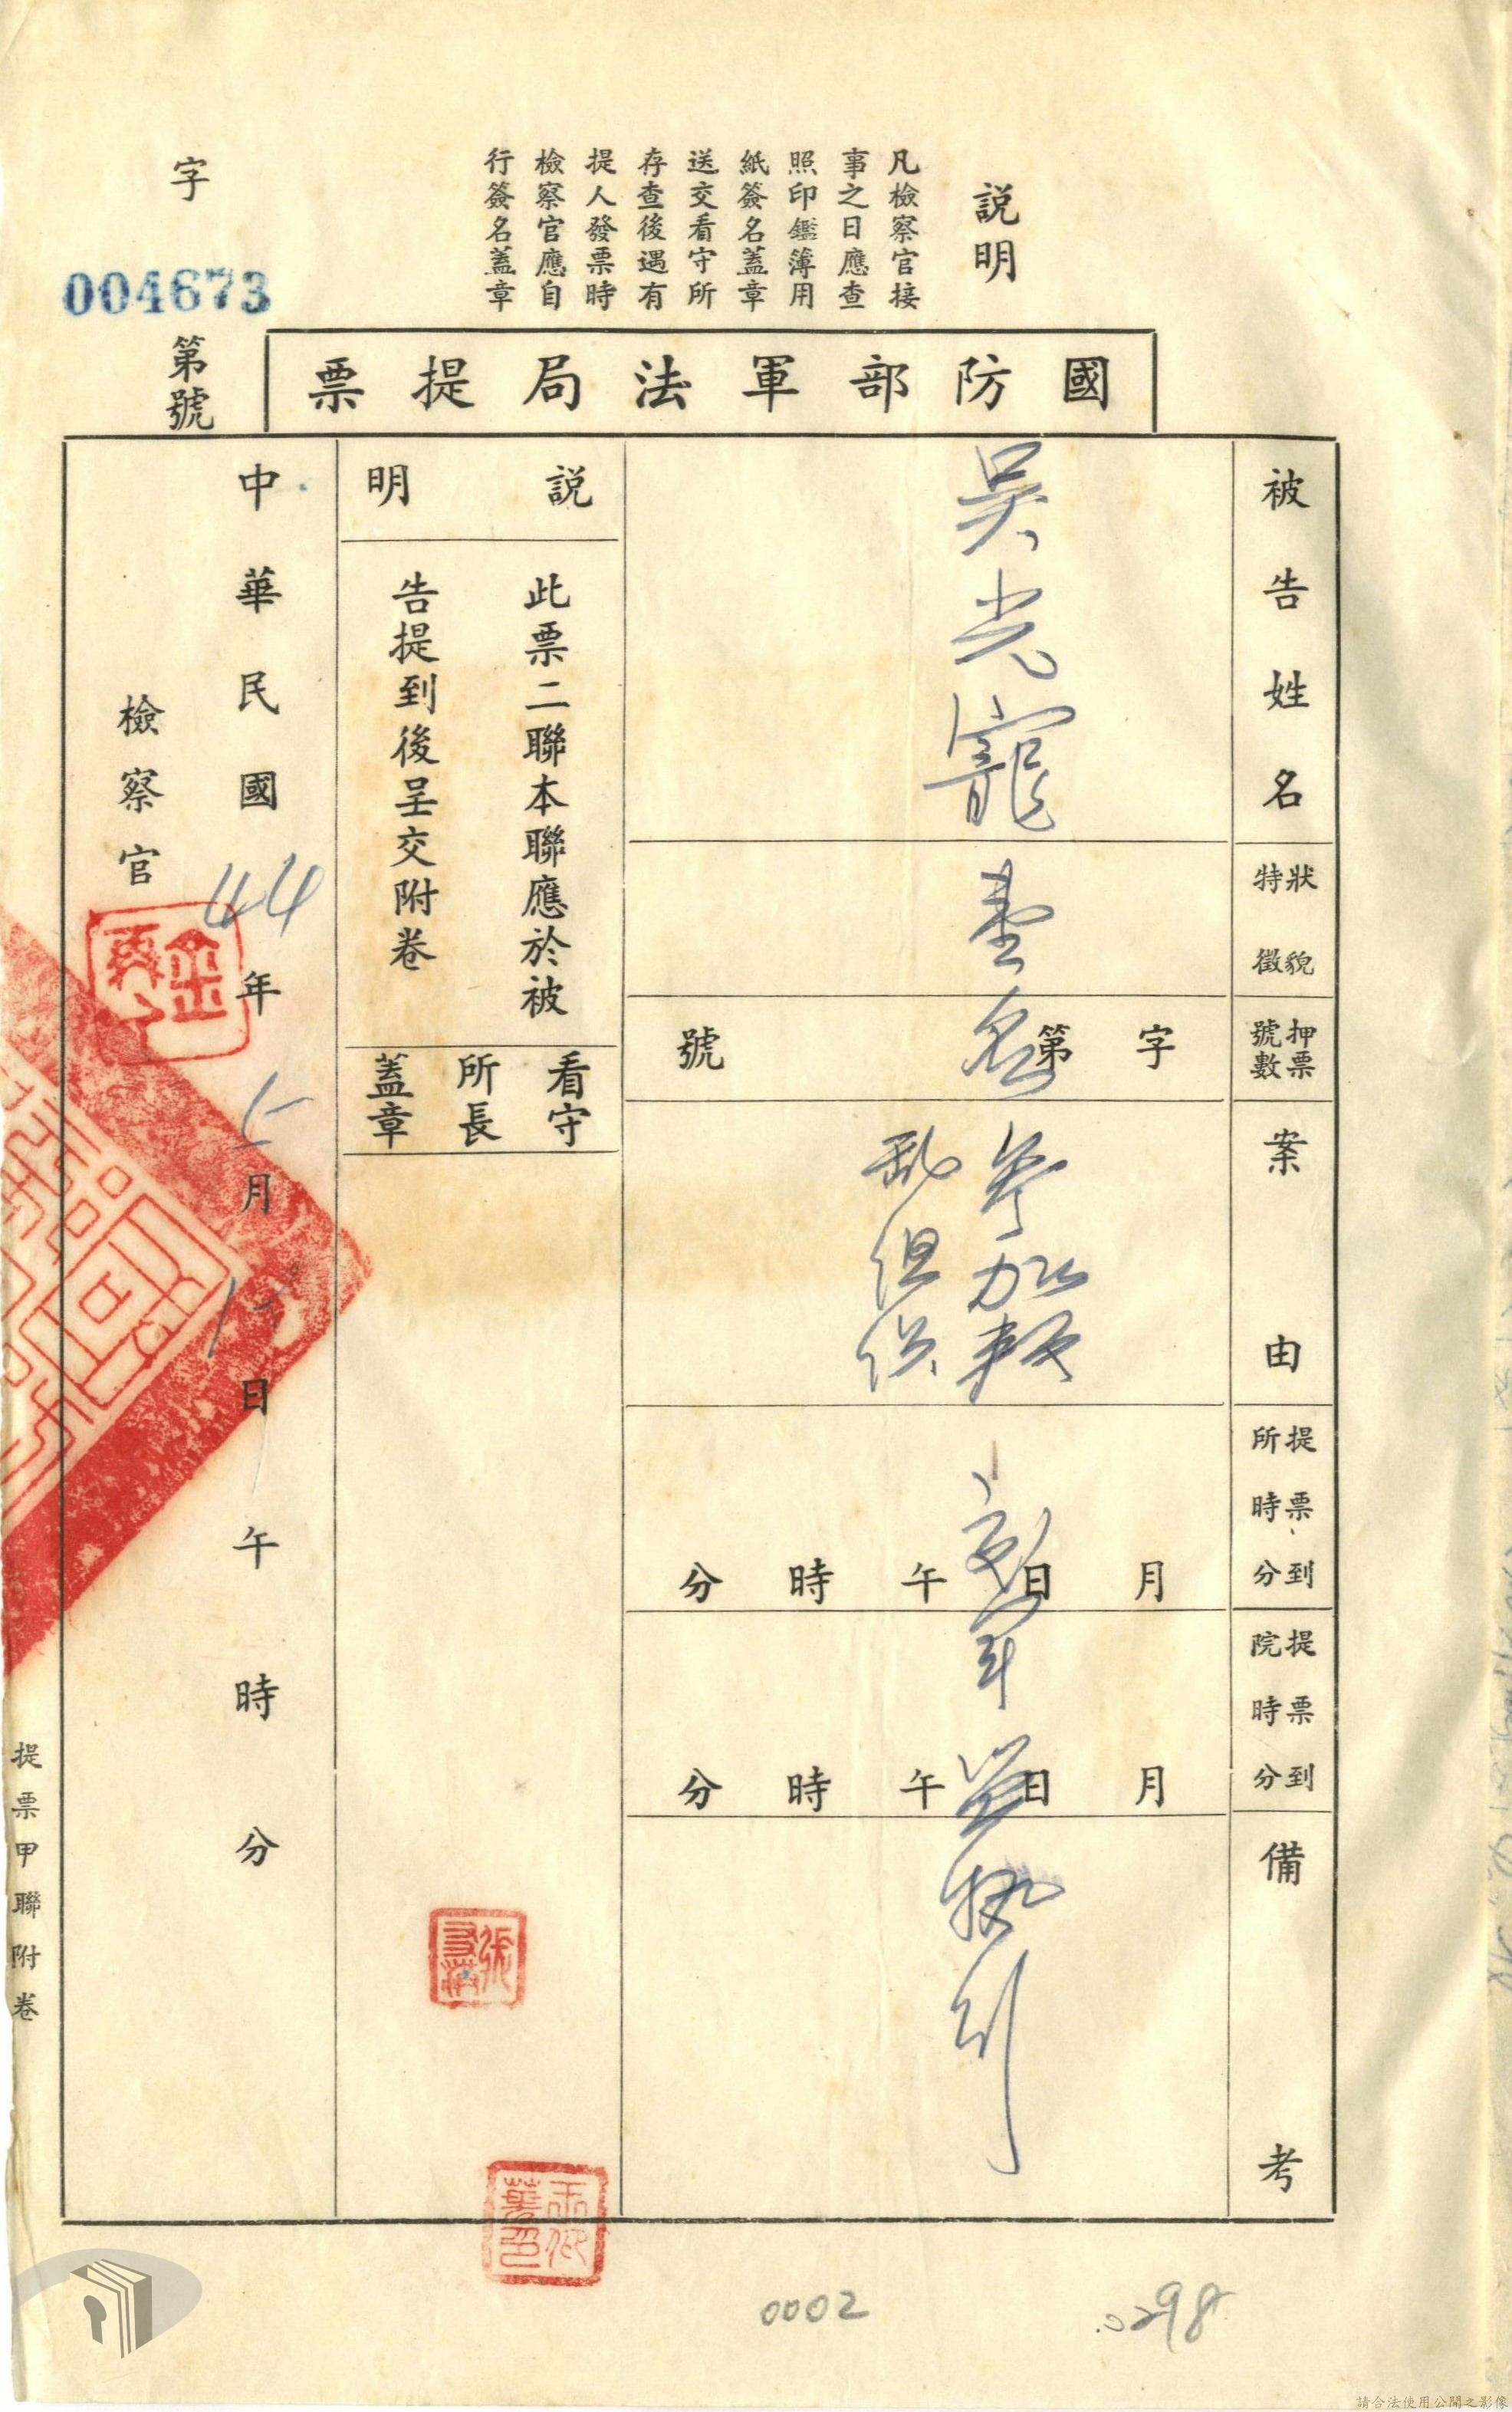 説明
凡檢察官接
事之日應查
照印鑑簿用
紙簽名蓋章
送交看守所
存查後遇有
提人發票時
檢察官應自
行簽名蓋章
字
004673
第號
國防部軍法局提票
被告姓名
吳光寵
狀貌特徵
壹名
押票號數
字第號
案由
參加叛
亂組織
提票到所時分
月日午時分
提票到院時分
月日午時分
備考
執行
説明
此票二聯本聯應於被
告提到後呈交附卷
看守所長蓋章
中華民國44年5月日午時分
檢察官
提票甲聯附卷
0002
0298
請合法使用公開之影像